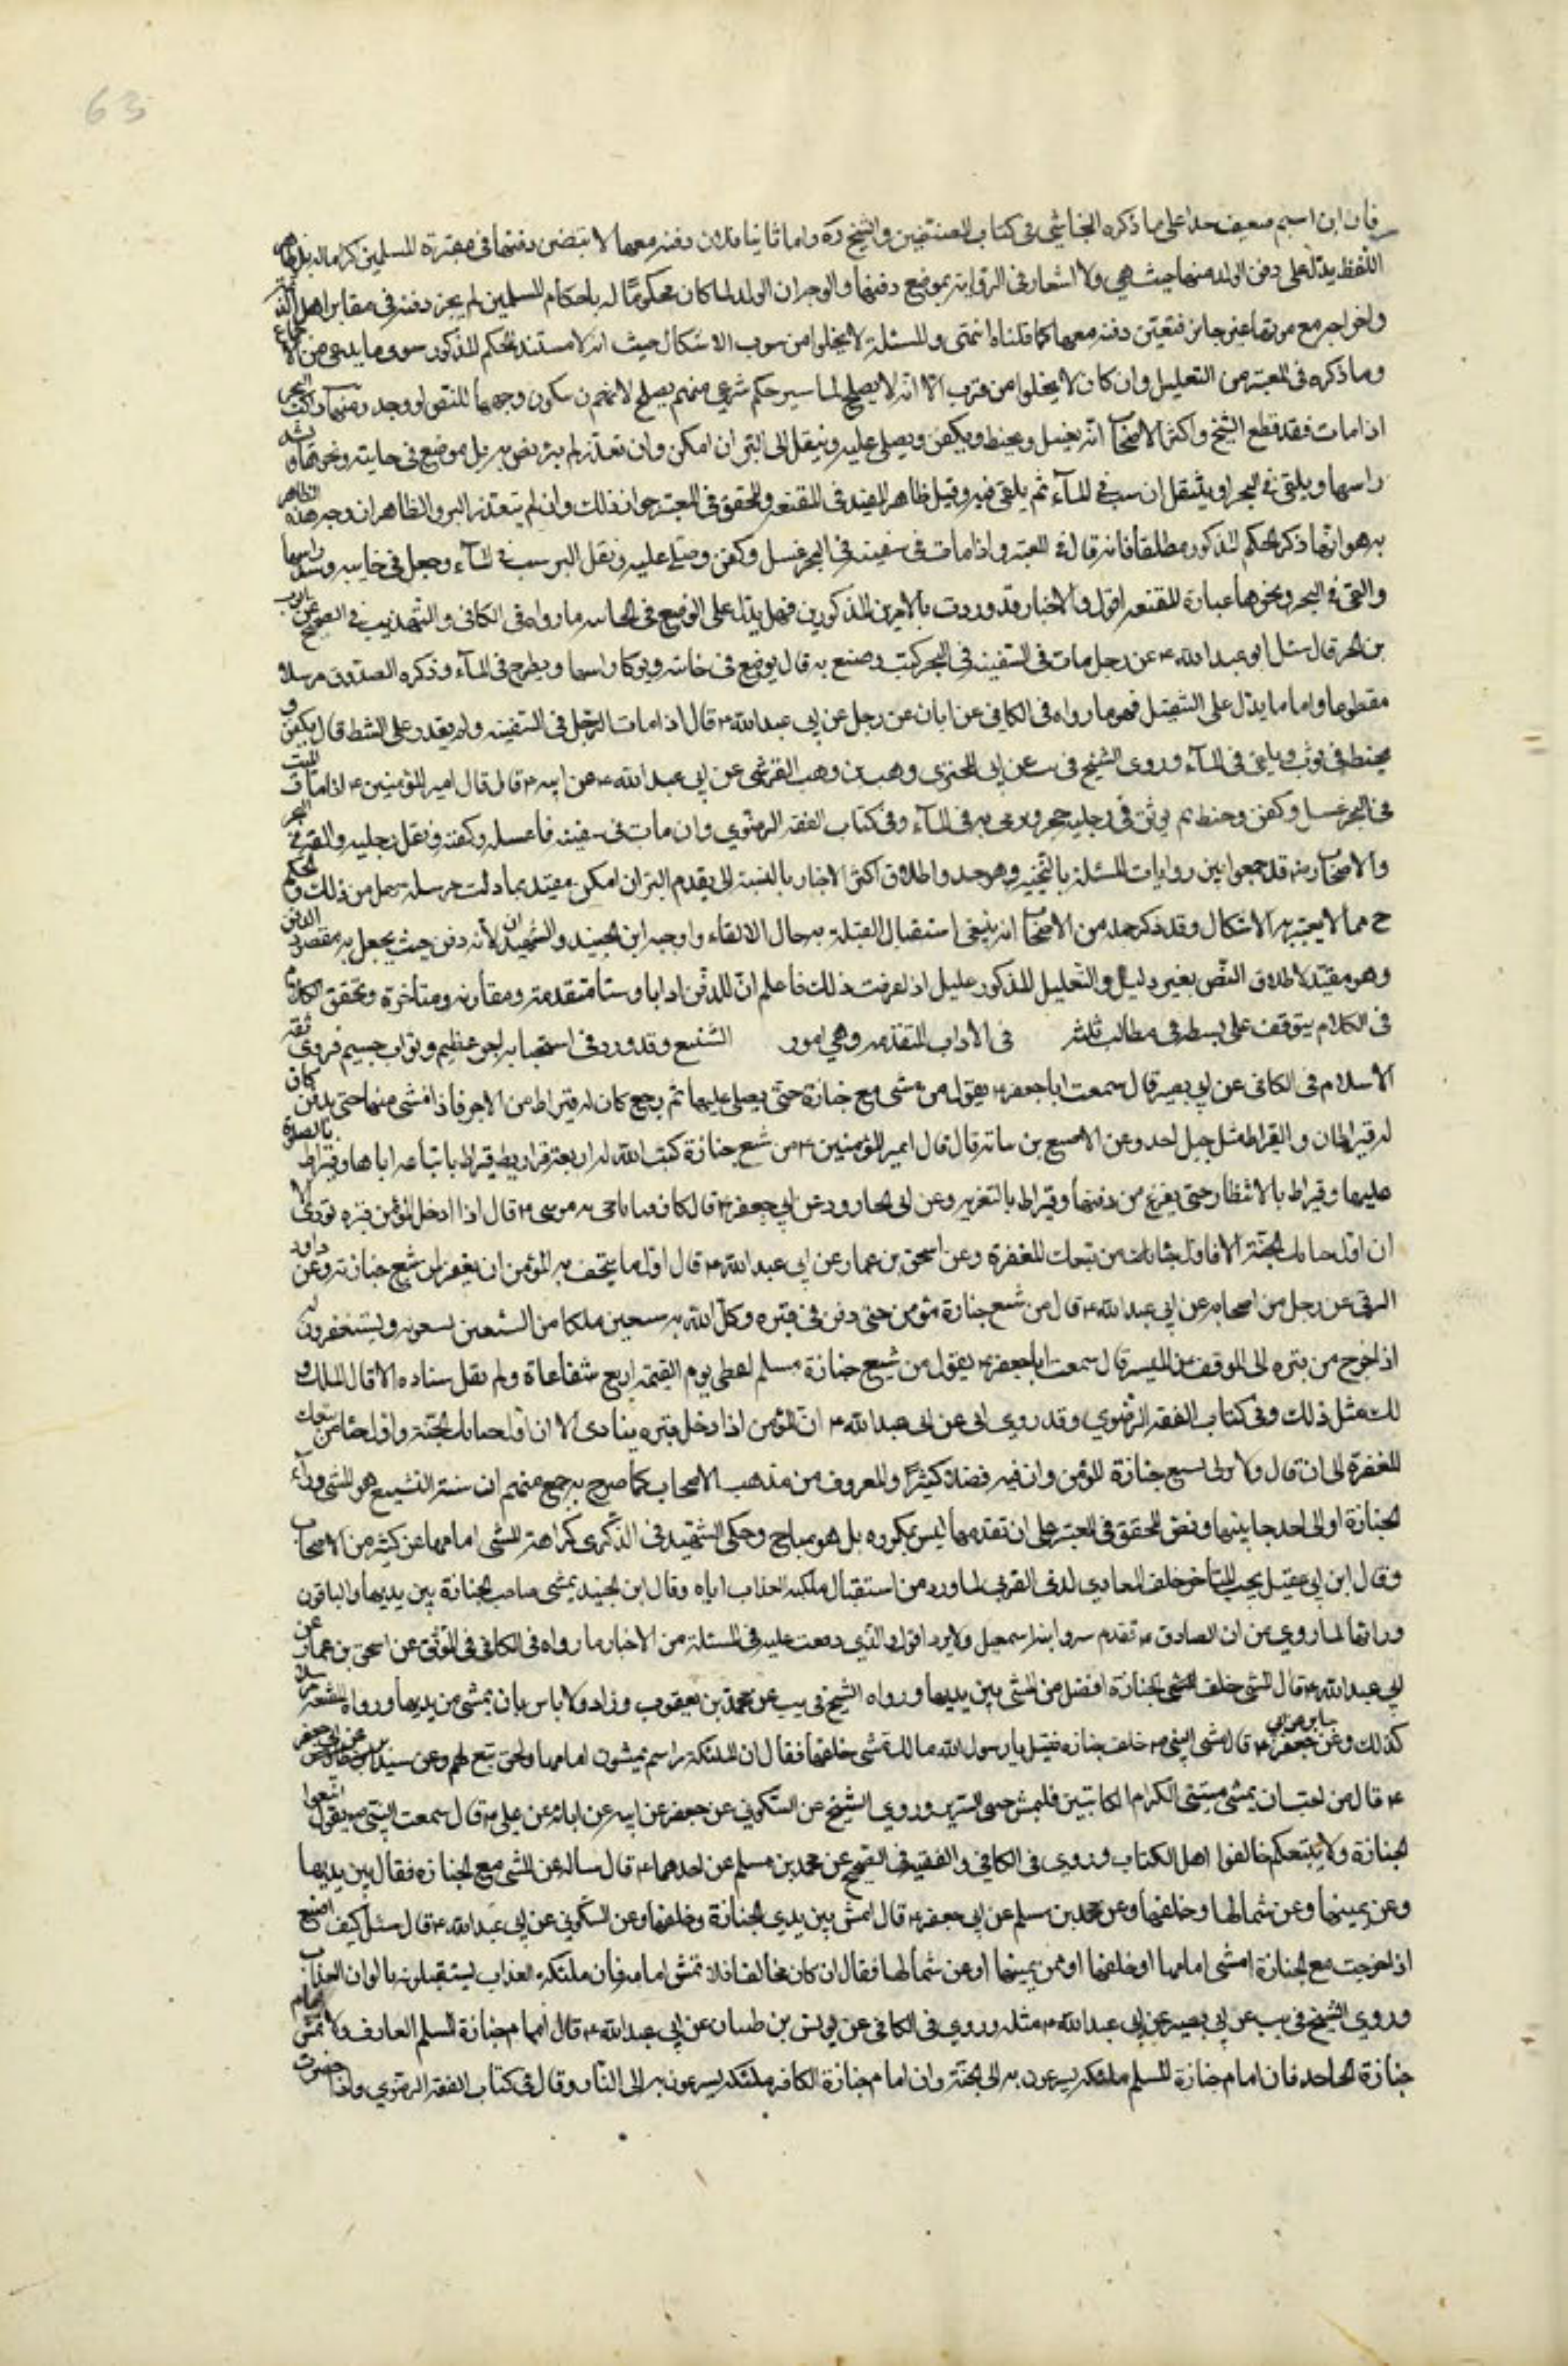 فان ابن اشيم ضعيف جدا على ما ذكره النجاشي في كتاب المصنفين والشيخ ره واما ثانيا فلان دفنه معها لا يتضمن دفنها في مقبرة المسلمين كراما له بل ظاهر
اللفظ يدل على دفن الولد منها حيث هي ولا اشعار في الرواية بموضع دفنها والوجه ان الولد لما كان محكوما له باحكام المسلمين لم يجز دفنه في مقابر اهل الذمة
واخراجه مع موتها غير جائز فتعين دفنه معها كما قلناه انتهى والمسئلة لا يخلوا من شوب الاشكال حيث انه لا مستند للحكم المذكور سوى ما يدعى من الاجماع
وما ذكره في المعتبر من التعليل وان كان لا يخلوا من قرب الا انه لا يصلح لتاسيس حكم شرعي نعم يصلح لان يكون وجها للنص لو وجد ومنها راكب البحر
اذا مات فقد قطع الشيخ واكثر الاصحاب انه يغسل ويحنط ويكفن ويصلى عليه وينقل الى البر ان امكن وان تعذر لم يتربص به بل موضع في خابية ونحوها ويشد
راسها ويلقى في البحر او يثقل ان يرسب في الماء ثم يلقى فيه وقيل ظاهر المفيد في المقنعه والمحقق في المعتبر جواز ذلك وان لم يتعذر البر والظاهر ان وجه هذه الظاهر
به هو انهما ذكرا الحكم المذكور مطلقا فانه قال في المعتبر واذا مات في سفينة في البحر غسل وكفن وصلى عليه ونقل البرسب في الماء وجعل في خابيه وسد راسها
والقى في البحر ونحوها عبارة المقنعه اقول والاخبار قد وردت بالامرين المذكورين فمما يدل على الوضع في الخابيه ما رواه في الكافي والتهذيب في الصحيح عن ايوب
بن الحر قال سئل ابو عبد الله ع عن رجل مات في السفينه في البحر كيف يصنع به قال يوضع في خابيه ويوكا راسها ويطرح في الماء وذكره الصدوق مرسلا
مقطوعا واما ما يدل على التثقيل فهو ما رواه في الكافي عن ابان عن رجل عن ابي عبد الله ع قال اذا مات الرجل في السفينه ولم يقدر على الشط قال يكفن و
يحنط في ثوب ويلقى في الماء وروى الشيخ في يب عن ابي البختري وهب بن وهب القرشي عن ابي عبد الله ع عن ابيه ع قال قال امير المؤمنين ع اذا مات الميت
في البحر غسل وكفن وحنط ثم يوثق في رجليه حجر ويرمى به في الماء وفي كتاب الفقه الرضوي وان مات في سفينه فاغسله وكفنه وثقل رجليه والقه في البحر
والاصحاب رض قد جمعوا بين روايات المسئلة بالتخيير وهو جيد واطلاق اكثر الاخبار بالنسبه الى تقديم البر ان امكن مقيد بما دلت مرسلة سهل من ذلك والحكم
ح مما لا يعتريه الاشكال وقد ذكر جمله من الاصحاب انه ينبغي استقبال القبلة به حال الالقاء واوجبه ابن الجنيد والشهيدان لانه دفن حيث يحصل به مقصود الدفن
وهو مقيد لاطلاق النص بغير دليل والتعليل المذكور عليل اذا عرفت ذلك فاعلم ان للدفن ادابا وسننا متقدمة ومقارنه ومتأخرة وتحقيق الكلام
في الكلام يتوقف على بسطه في مطالب ثلثه في الاداب المتقدمه وهي امور التشييع وقد ورد في استحبابه اجر عظيم وثواب جسيم فروى ثقة
الاسلام في الكافي عن ابي بصير قال سمعت ابا جعفر ع يقول من مشى مع جنازة حتى يصلى عليها ثم رجع كان له قيراط من الاجر فاذا مشى معها حتى يدفن كان
له قيراطان والقيراط مثل جبل احد وعن الاصبغ بن نباته قال قال امير المؤمنين ع من شيع جنازة كتب الله له اربعة قراريط قيراط باتباعه اياها وقيراط بالصلوة
عليها وقيراط بالانتظار حتى يفرغ من دفنها وقيراط بالتعزيه وعن ابي الجارود عن ابي جعفر ع قال كان فيما ناجى به موسى ع قال اذا ادخل المؤمن قبره نودي الا
ان اول حبائك الجنة الا واول حباء من تبعك المغفرة وعن اسحق بن عمار عن ابي عبد الله ع قال اول ما يتحف به المؤمن ان يغفر لمن شيع جنازته وعن داود
الرقي عن رجل من اصحابه عن ابي عبد الله ع قال من شيع جنازة مؤمن حتى دفن في قبره وكل الله به سبعين ملكا من المشيعين يشيعونه ويستغفرون له
اذا خرج من قبره الى الموقف وعن الميسر قال سمعت ابا جعفر ع يقول من شيع جنازة مسلم اعطي يوم القيمة اربع شفاعاة ولم يقل شيئا الا قال الملك و
لك مثل ذلك وفي كتاب الفقه الرضوي وقد روى ابي عن ابي عبد الله ع ان المؤمن اذا دخل قبره ينادى الا ان اول حبائك الجنة واول حباء من تبعك
المغفرة الى ان قال ولا تدع تشييع جنازة المؤمن وان فيه فضلا كثيرا والمعروف من مذهب الاصحاب كما صرح به جمع منهم ان سنة التشييع هو المشي وراء
الجنازة او الى احد جانبيها ونص المحقق في المعتبر على ان تقدمها ليس بمكروه بل هو مباح وحكى الشهيد في الذكرى كراهة المشي امامها عن كثير من الاصحاب
وقال ابن ابي عقيل يجب التأخر خلف المعادي لذي القربى لما ورد من استقبال ملئكه العذاب اياه وقال ابن الجنيد يمشي صاحب الجنازة بين يديها والباقون
ورائها لما روي من ان الصادق ع تقدم سرير ابنه اسمعيل ولا يرد اقول والذي وقفت عليه في المسئلة من الاخبار ما رواه في الكافي في الموثق عن اسحق بن عمار عن
ابي عبد الله ع قال المشي خلف الجنازة افضل من المشي بين يديها ورواه الشيخ في يب عن محمد بن يعقوب وزاد ولا باس بان يمشي بين يديها ورواه الفقيه مرسلا
كذلك وعن جابر عن ابي جعفر ع قال مشى النبي ص خلف جنازه فقيل يا رسول الله مالك تمشي خلفها فقال ان الملئكة رايتهم يمشون امامها ونحن تبع لهم وعن سدير عن ابي جعفر
ع قال من احب ان يمشي ممشى الكرام الكاتبين فليمش جنبي السرير وروى الشيخ عن السكوني عن جعفر عن ابيه عن ابائه عن علي ع قال سمعت النبي ص يقول اتبعوا
الجنازة ولا تتبعكم خالفوا اهل الكتاب وروى في الكافي والفقيه في الصحيح عن محمد بن مسلم عن احدهما ع قال ساله عن المشي مع الجنازه فقال بين يديها
وعن يمينها وعن شمالها وخلفها وعن محمد بن مسلم عن ابي جعفر ع قال امش بين يدي الجنازة وخلفها وعن السكوني عن ابي عبد الله ع قال سئل كيف اصنع
اذا خرجت مع الجنازة امشي امامها او خلفها او عن يمينها او عن شمالها فقال ان كان مخالفا فلا تمش امامه فان ملئكة العذاب يستقبلونه بالوان العذاب
وروى الشيخ في يب عن ابي بصير عن ابي عبد الله ع مثله وروى في الكافي عن يونس بن ظبيان عن ابي عبد الله ع قال امش امام جنازة المسلم العارف ولا تمش امام
جنازة الجاحد فان امام جنازة المسلم ملئكه يسرعون به الى الجنة وان امام جنازة الكافر ملئكه يسرعون به الى النار وقال في كتاب الفقه الرضوي واذا حضرت